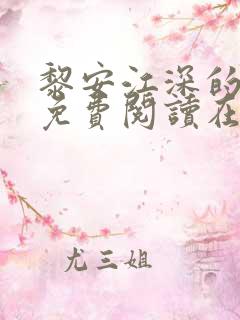 黎安江深的
免費閱讀在
尤三姐